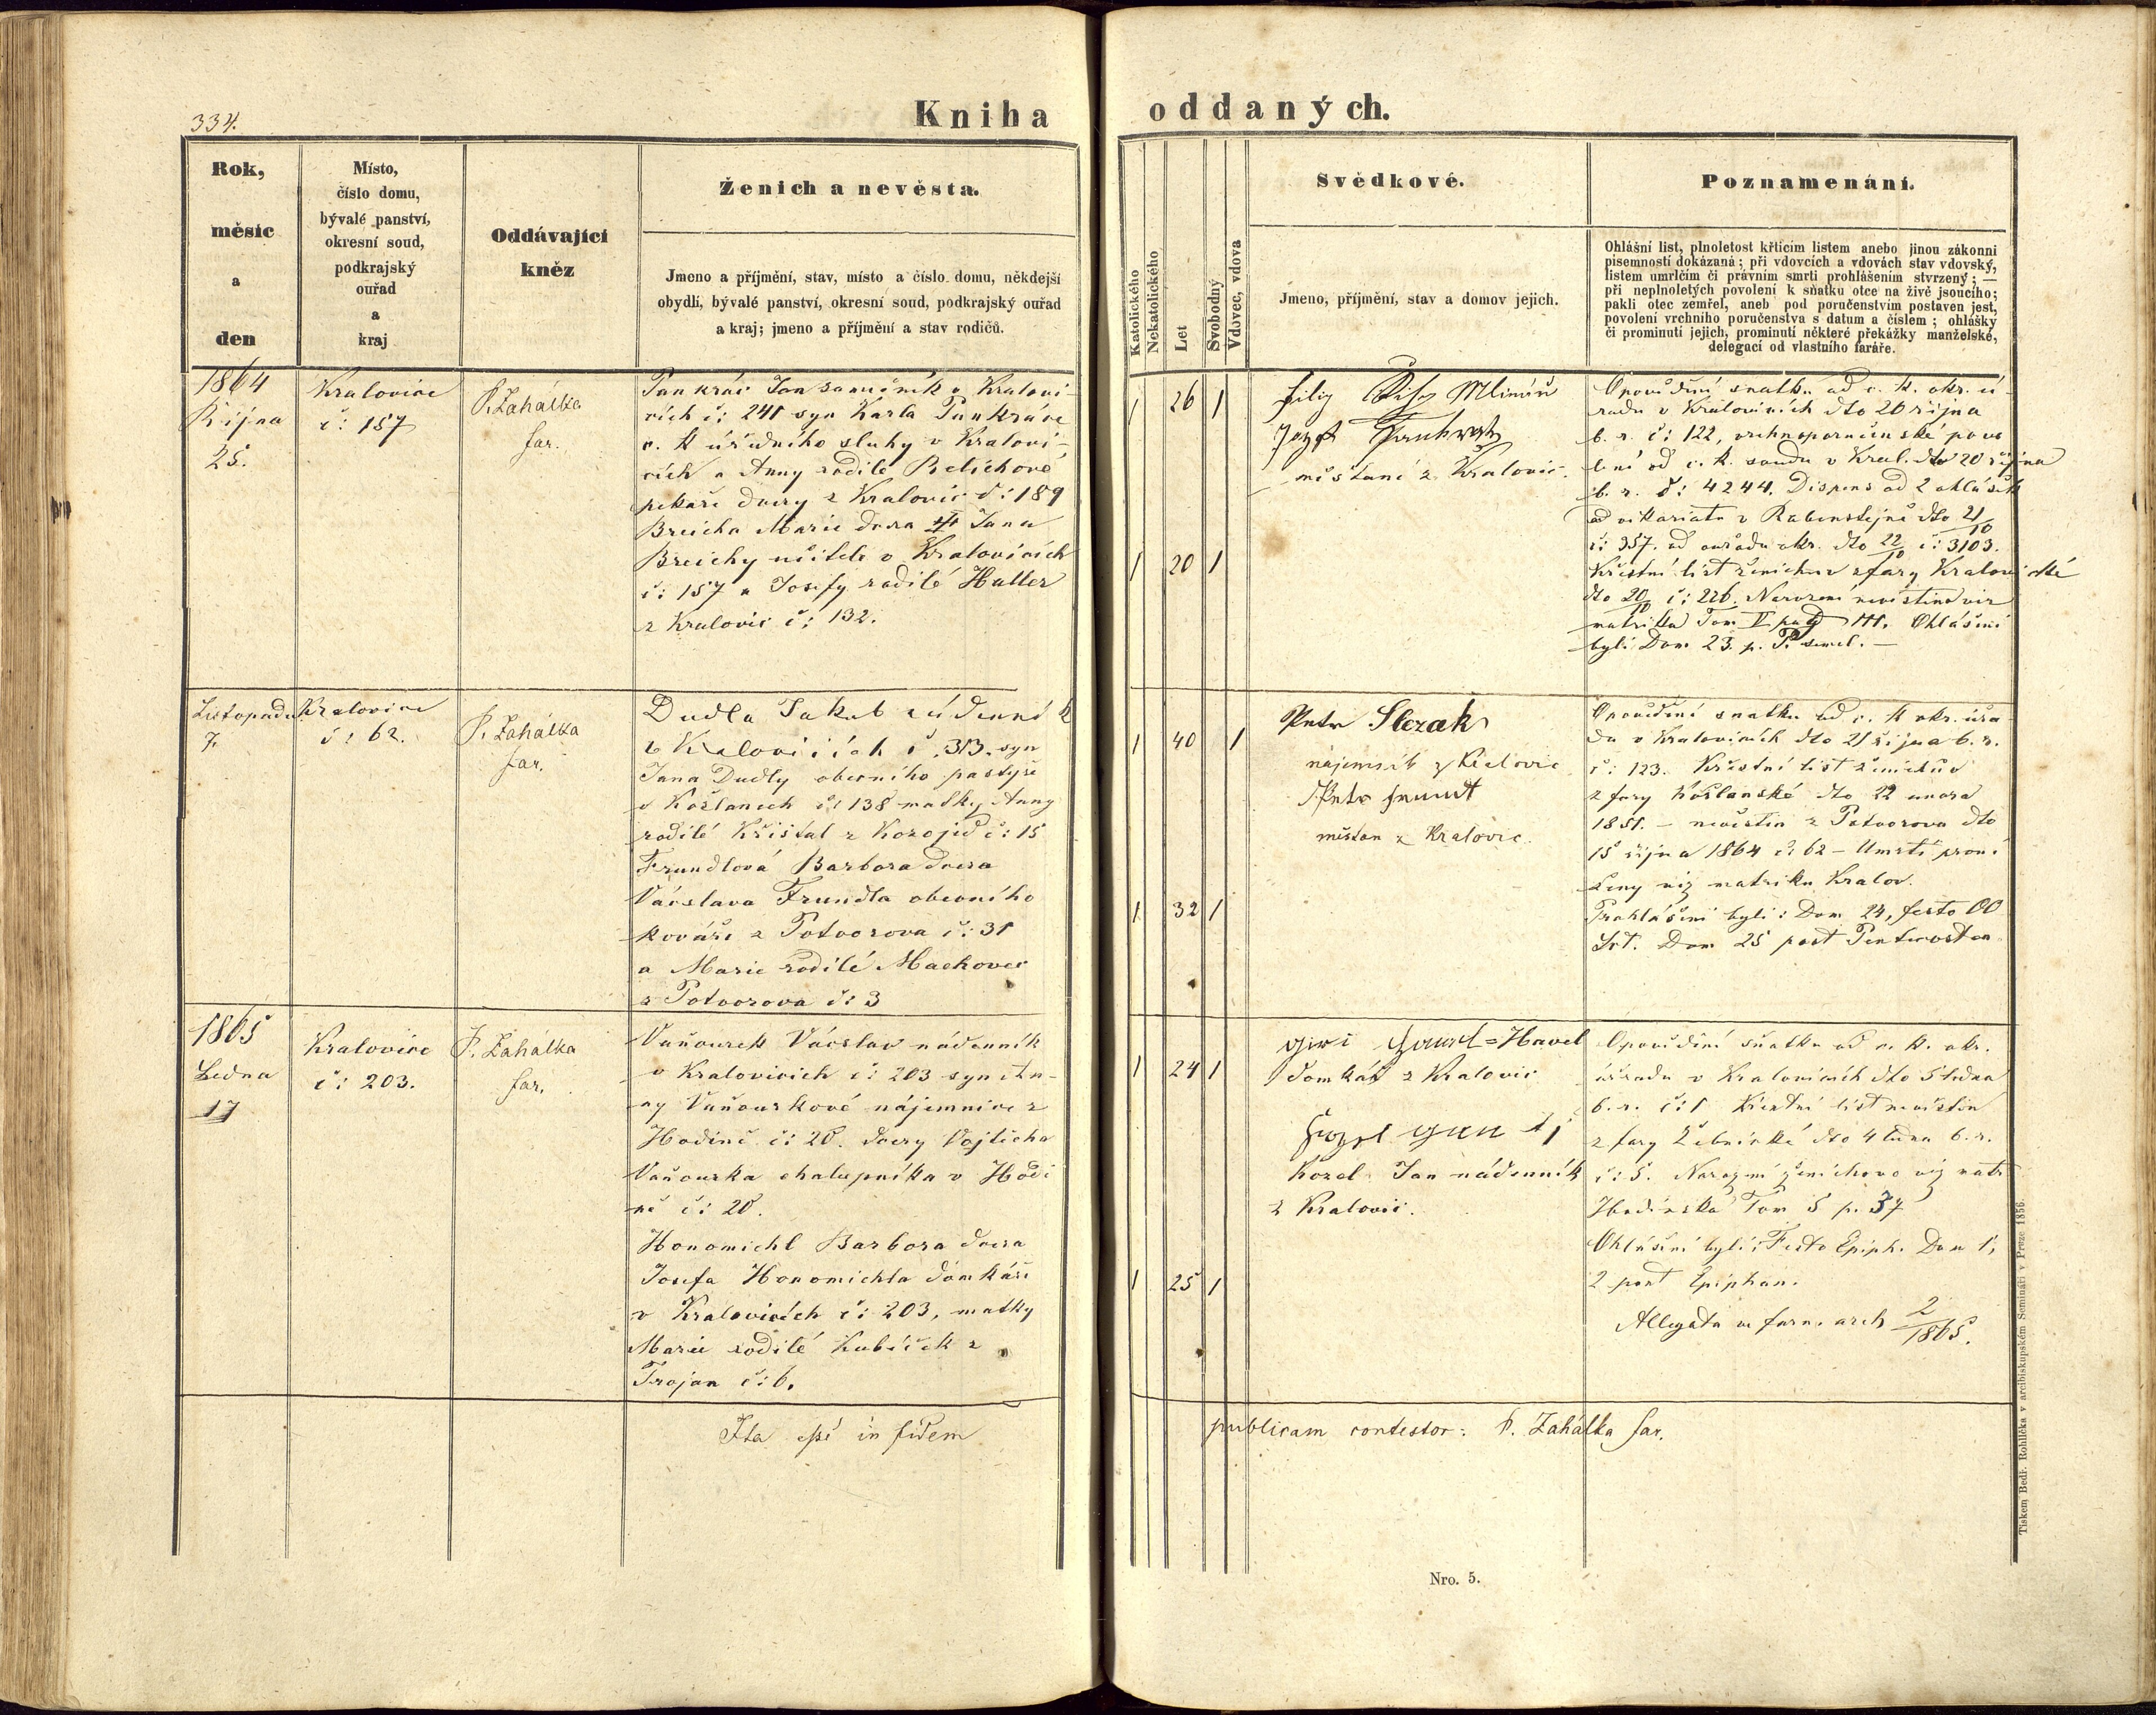 334.
Kniha oddaných.
Rok,
měsíc
a
den
Místo,
číslo domu,
bývalé panství,
okresní soud,
podkrajský
ouřad
a
kraj
Oddávající
kněz
Ženich a nevěsta.
Jmeno a příjmění, stav, místo a číslo domu, někdejší
obydlí, bývalé panství, okresní soud, podkrajský ouřad
a kraj; jmeno a příjmění a stav rodičů.
Katolického
Nekatolického
Let
Svobodný
Vdovec, vdova
Svědkové.
Jmeno, příjmění, stav a domov jejich.
Poznamenání.
Ohlášní list, plnoletost křticím listem anebo jinou zákonní
písemností dokázaná; při vdovcích a vdovách stav vdovský,
listem umrlčím či právním smrti prohlášením stvrzený; —
při neplnoletých povolení k sňatku otce na živě jsoucího;
pakli otec zemřel, aneb pod poručenstvím postaven jest,
povolení vrchního poručenstva s datum a číslem; ohlášky
či prominutí jejich, prominutí některé překážky manželské,
delegací od vlastního faráře.
1864
Října
25.
Kralovice
č: 157
P. Zahálka
far.
Pankrác Jan v Kralovi-
cích č: 241 syn Karla Pankráce
c. k úředního sluhy v Kralovi-
cích a Anny rodilé
pekaře dcery z Kralovic č: 189
Breicha Marie dcera Jana
Breichy učitele v Kralovicích
č: 157 a Josefy rodilé Haller
z Kralovic č: 132.
1 26 1
1 20 1
Filip
Jozef
měšťané z Kralovic.
Opovědění snatku od c. k. okr. ú-
řadu v Kralovicích dto 26 října
b. r. č: 122, vrchnoporučenské povo
lení od c. k. soudu v Kral. dto 20 října
b. r. č: 4244. Dispens od 2 ohlášek
od vikariatu v Rabenštejně dto 21/10
č: 357. od ouřadu okr. dto 22/10 č: 3103.
Křestní list ženichův z fary Kralovické
dto 20/10 č: 226. Narození nevěstino viz
matrika Tom
byli Dom 23. p. P. semel. —
Listopadu
7.
Kralovice
č: 62.
P. Zahálka
far.
Dudla Jakub nádenník
v Kralovicích č. 313. syn
Jana Dudly obecního pastýře
v Kožlanech č: 138 matky Anny
rodilé Křišťal z Kozojed č: 15
Frundlová Barbora dcera
Václava Frundla obecního
kováře z Potvorova č: 31
a Marie rodilé Mackovec
z Potvorova č: 3
1 40 1
1 32 1
Petr Slezak
nájemník z Kralovic
Petr
měšťan z Kralovic.
Opovědění snatku od c. k okr. úřa
du v Kralovicích dto 21 října b. r.
č: 123. Křestní list ženichův
z fary Kožlanské dto 22 unora
1851. — nevěstin z Potvorova dto
15 října 1864 č: 62 — Umrtí první
ženy viz matriku Kralov.
Prohlášeni byli: Dom 24, festo OO
Sct. Dom 25 post Pentecosten
1865
Ledna
17
Kralovice
č: 203.
P. Zahálka
far.
Vaňourek Václav nádenník
v Kralovicích č: 203 syn An-
ny Vaňourkové nájemnice z
Hodině č: 20. dcery Vojtěcha
Vaňourka chalupníka v Hodi
ně č: 20.
Honomichl Barbora dcera
Josefa Honomichla domkáře
v Kralovicích č: 203, matky
Marie rodilé Kubíček z
Trojan č: 6.
1 24 1
1 25 1
Havel
domkář z Kralovic
Kozel Jan nádenník
z Kralovic.
Opovědění sňatku od c. k. okr.
úřadu v Kralovicích dto 5 ledna
b. r. č: 1 Křestní list nevěstin
z fary Žebnické dto 4 ledna b. r.
č: 5. Narození ženichovo viz matr
Tom 5 p. 37
Ohlášeni byli: Festo Epiph. Dom 1,
2 post Epiphan.
Allegata in farn. arch 2/1865.
Ita esse in fidem
publicam contestor: P. Zahálka far.
Nro. 5.
Tiskem Bedř. Rohlíčka v arcibiskupském Semináři v Praze 1856.